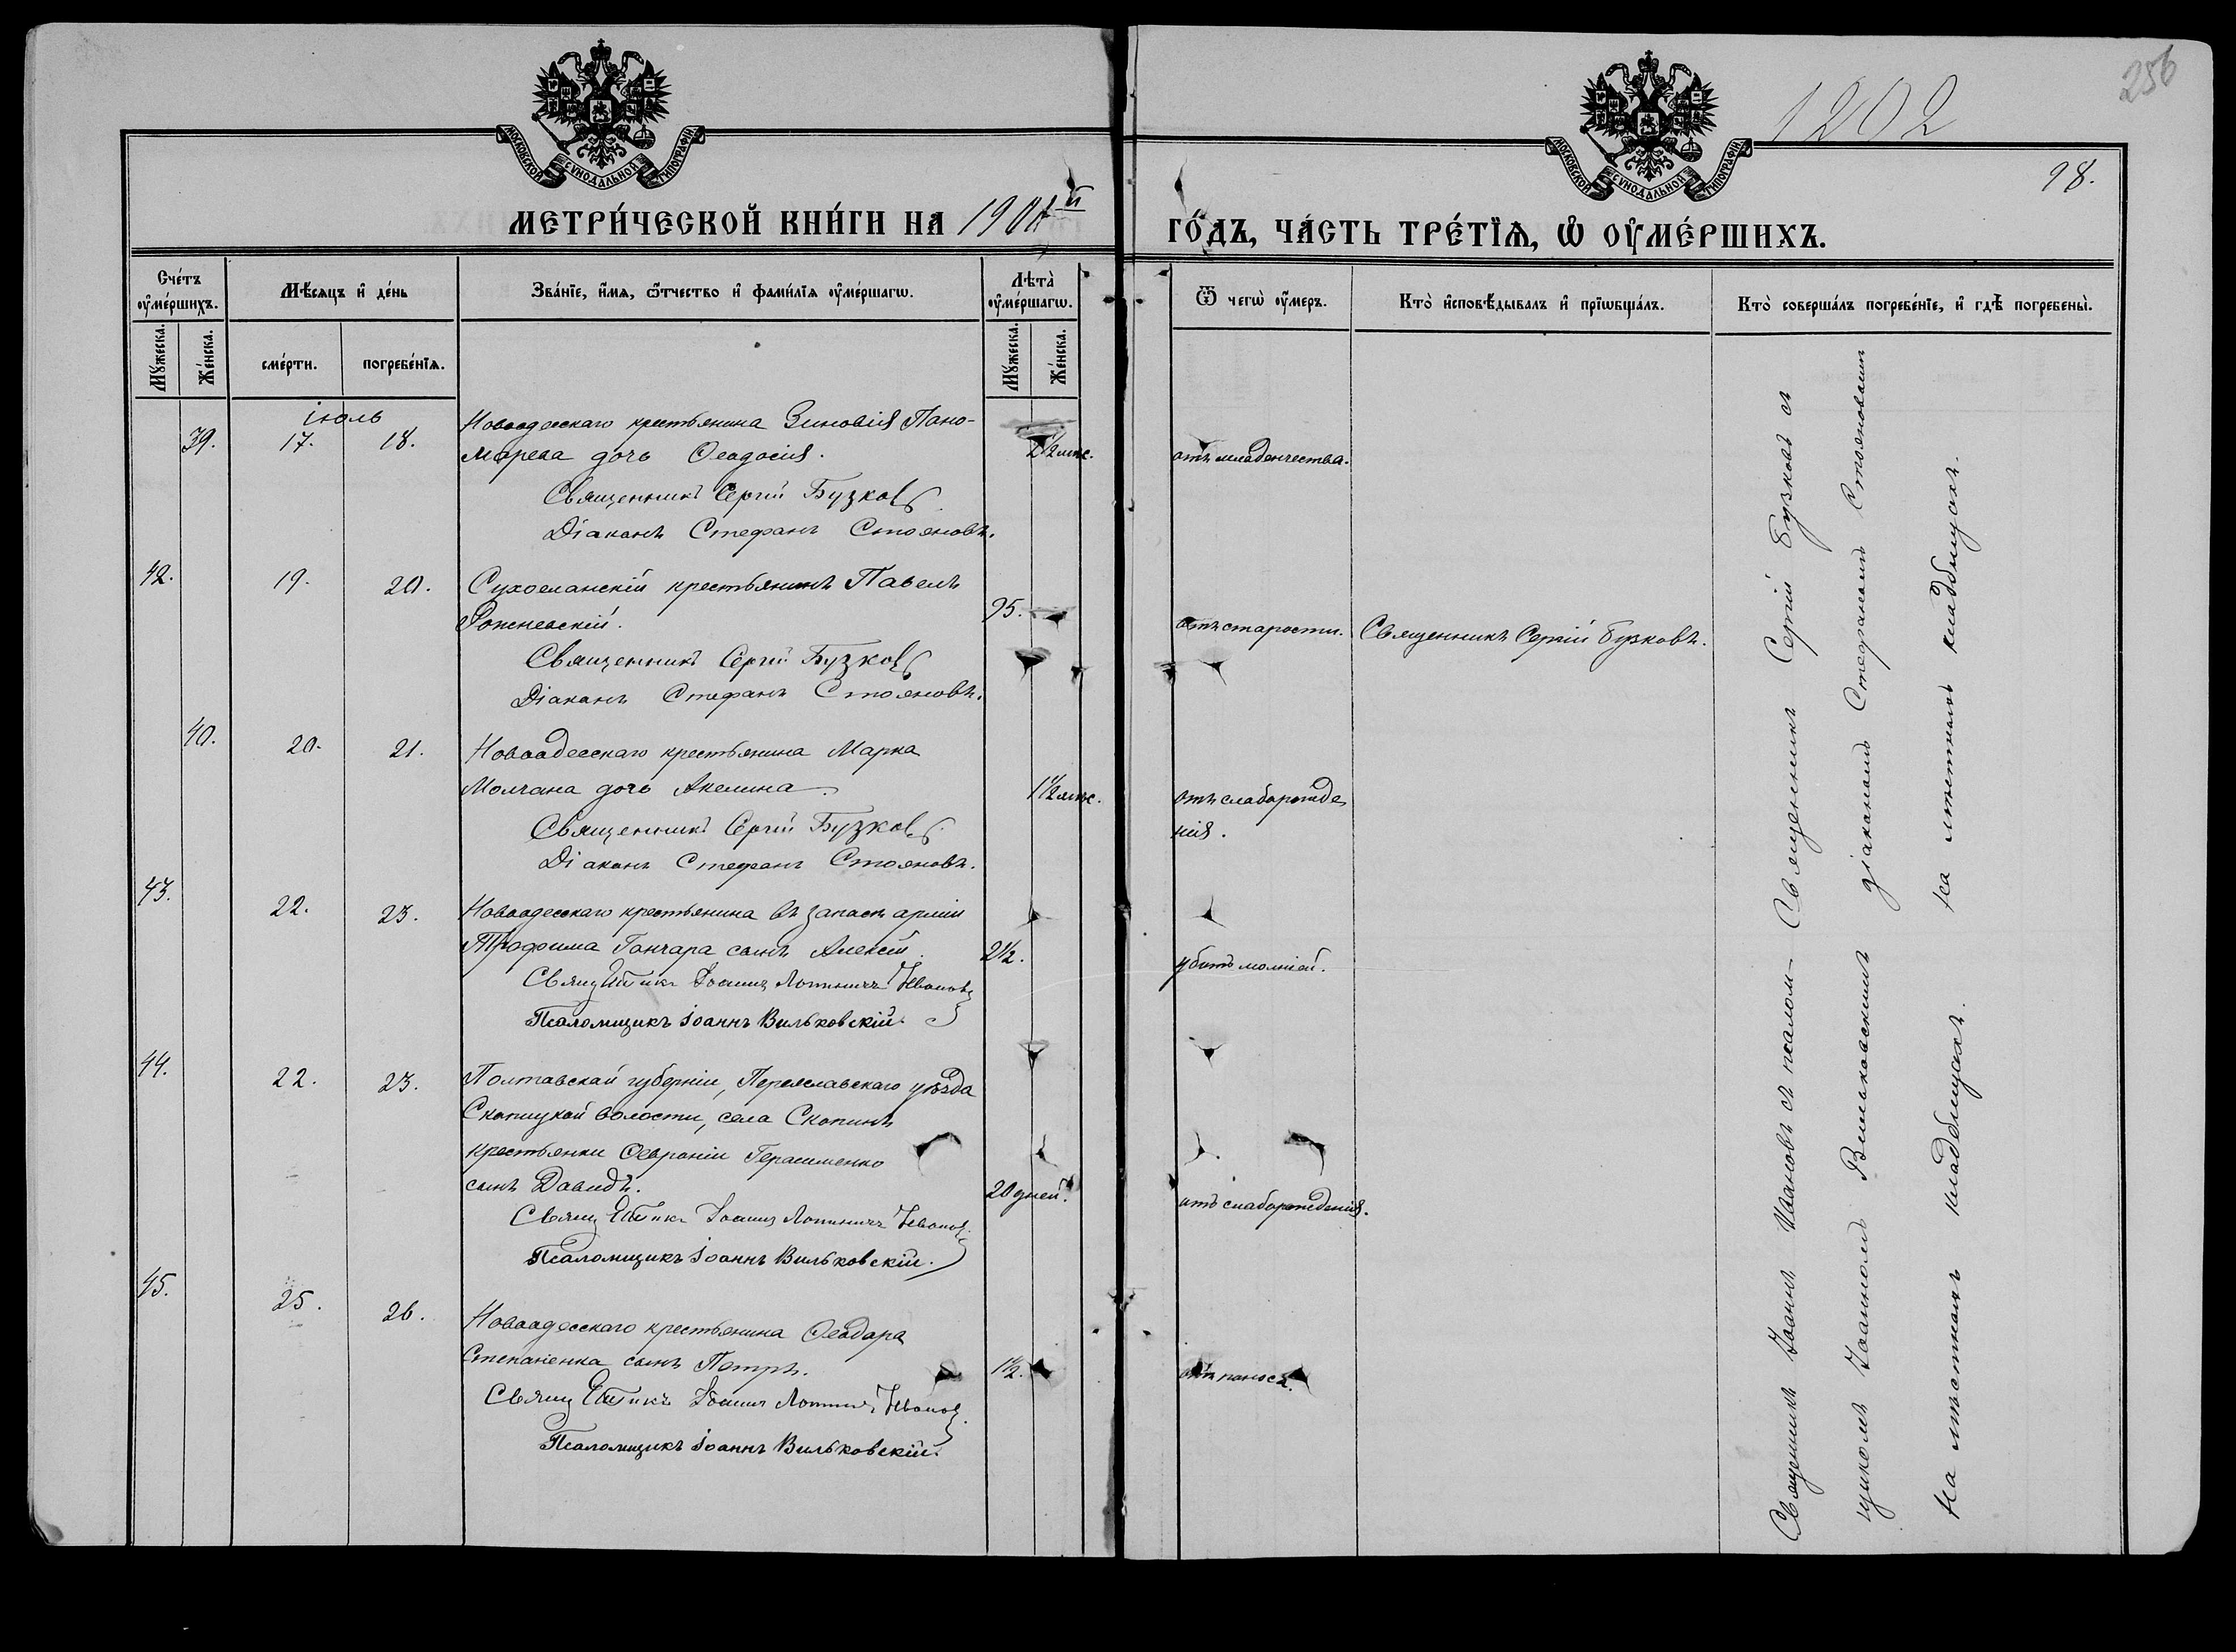 256
1202
98.
МОСКОВСКОЙ СѴНОДАЛЬНОЙ ТИПОГРАФІИ
МОСКОВСКОЙ СѴНОДАЛЬНОЙ ТИПОГРАФІИ
МЕТРИ́ЧЕСКОЙ КНИ́ГИ НА 1904й ГО́ДЪ, ЧА́СТЬ ТРЕ́ТЇѦ, Ѡ҆ ОУ҆МЕ́РШИХЪ.
Сче́тъ оу҆ме́ршихъ.
Мѣ́сѧцъ и҆ де́нь
Зва́нїе, и҆́мѧ, ѻ҆́тчество и҆ фами́лїѧ оу҆ме́ршагѡ.
Лѣ́та оу҆ме́ршагѡ.
Ѿ чегѡ̀ оу҆́меръ.
Кто̀ и҆сповѣ́дывалъ и҆ прїѡбща́лъ.
Кто̀ соверша́лъ погребе́нїе, и҆ гдѣ̀ погребены̀.
Мꙋ́жеска.
Же́нска.
сме́рти.
погребе́нїѧ.
Мꙋ́жеска.
Же́нска.
іюль
39. 17. 18. Новоодесскаго крестьянина Зиновія Поно-
марева дочь Ѳеодосія. 2½ мѣс. отъ младенчества.
Священникъ Сергій Бузковъ
Діаконъ Стефанъ Стояновъ.
42. 19. 20. Сухоеланскій крестьянинъ Павелъ
95. отъ старости. Священникъ Сергій Бузковъ.
Священникъ Сергій Бузковъ
Діаконъ Стефанъ Стояновъ.
40. 20. 21. Новоодесскаго крестьянина Марка
Молчана дочь Акелина. 1½ мѣс. отъ слаборожде
нія.
Священникъ Сергій Бузковъ.
Діаконъ Стефанъ Стояновъ.
43. 22. 23. Новоодесскаго крестьянина въ запасѣ арміи
Трофима Гончара сынъ Алексій. 2½. убитъ молніей.
Іоаннъ Ивановъ
Псаломщикъ Іоаннъ Вильковскій.
44. 22. 23. Полтавской губерніи, Переяславскаго уѣзда
волости, села
крестьянки Ѳевроніи Герасименко
сынъ Давидъ. 20 дней. отъ слаборожденія.
Іоаннъ Ивановъ
Псаломщикъ Іоаннъ Вильковскій.
45. 25. 26. Новоодесскаго крестьянина Ѳеодора
Степаненка сынъ Петръ. 1½. отъ поноса.
Іоаннъ Ивановъ
Псаломщикъ Іоаннъ Вильковскій.
Священникъ Іоаннъ Ивановъ съ псалом-
щикомъ Іоанномъ Вильковскимъ
на мѣстномъ кладбищѣ.
Священникъ Сергій Бузковъ съ
діакономъ Стефаномъ Стояновымъ
на мѣстномъ кладбищѣ.